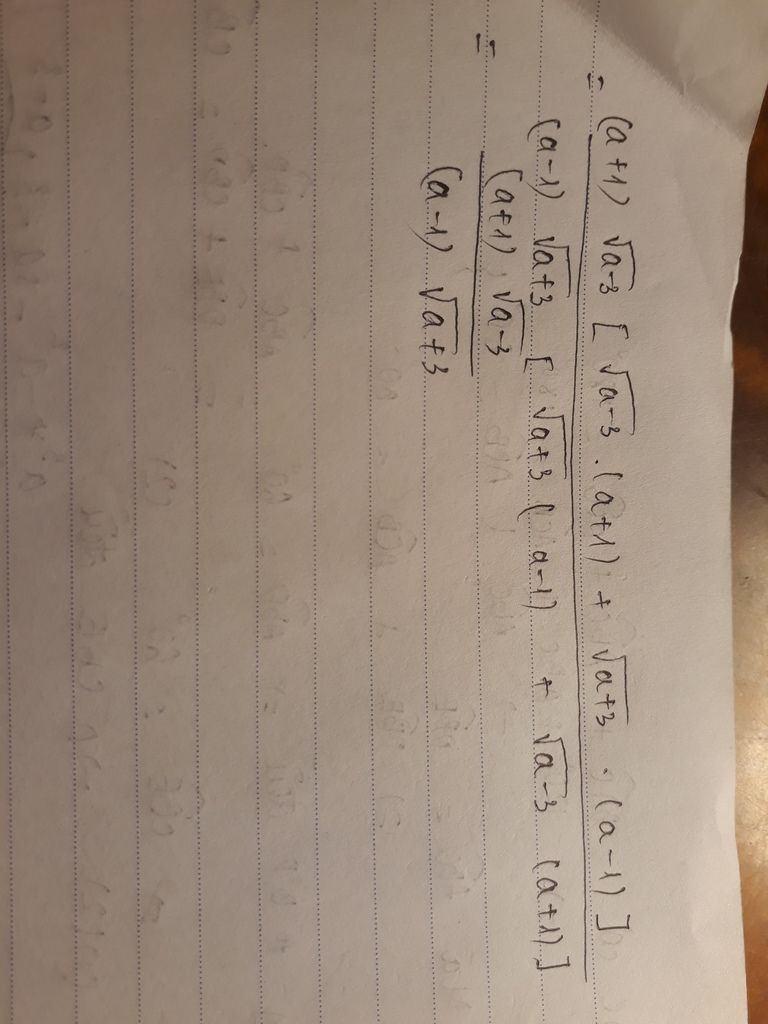 = (a+1) √a-3 [ √a-3 . (a+1) + √a+3 . (a-1) ]
(a-1) √a+3 [ √a+3 (a-1) + √a-3 (a+1) ]
= (a+1) √a-3
(a-1) √a+3